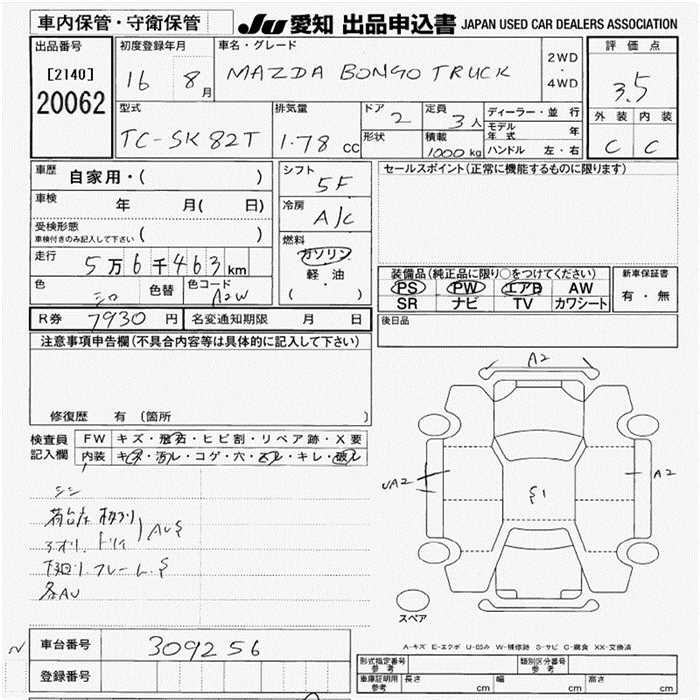 車内保管・守衛保管
JU 愛知 出品申込書 JAPAN USED CAR DEALERS ASSOCIATION
出品番号
[2140]
20062
初度登録年月
16 8月
車名・グレード
MAZDA BONGO TRUCK
2WD
・
4WD
評価点
3.5
外装 内装
C C
型式
TC-SK82T
排気量
1.78 cc
ドア
2
形状
定員
3人
積載
1000kg
ディーラー・並行
モデル年式 年
ハンドル 左・右
車歴
自家用・( )
車検
年 月( 日)
受検形態
車検付きのみ記入して下さい ( )
走行
5万6千463km
色
シロ
色替
色コード
A2W
シフト
5F
冷房
A/C
燃料
ガソリン
軽油
( )
セールスポイント(正常に機能するものに限ります)
装備品(純正品に限り○をつけてください)
PS PW エアB AW
SR ナビ TV カワシート
新車保証書
有・無
R券 7930円
名変通知期限 月 日
後日品
注意事項申告欄(不具合内容等は具体的に記入して下さい)
修復歴 有 (箇所 )
検査員
記入欄
FW キズ・飛石・ヒビ割・リペア跡・X要
内装 キズ・汚ル・コゲ・穴・スレ・キレ・破ル
A2
UA2
S1
A2
シシ
荷台左
アオリ.
AUS
下廻り.フレーム.S
各AU
スペア
A-キズ E-エクボ U-凹み W-補修跡 S-サビ C-腐食 XX-交換済
車台番号
309256
登録番号
形式指定番号
参考
類別区分番号
参考
車庫証明用
参考
長さ cm 幅 cm 高さ cm